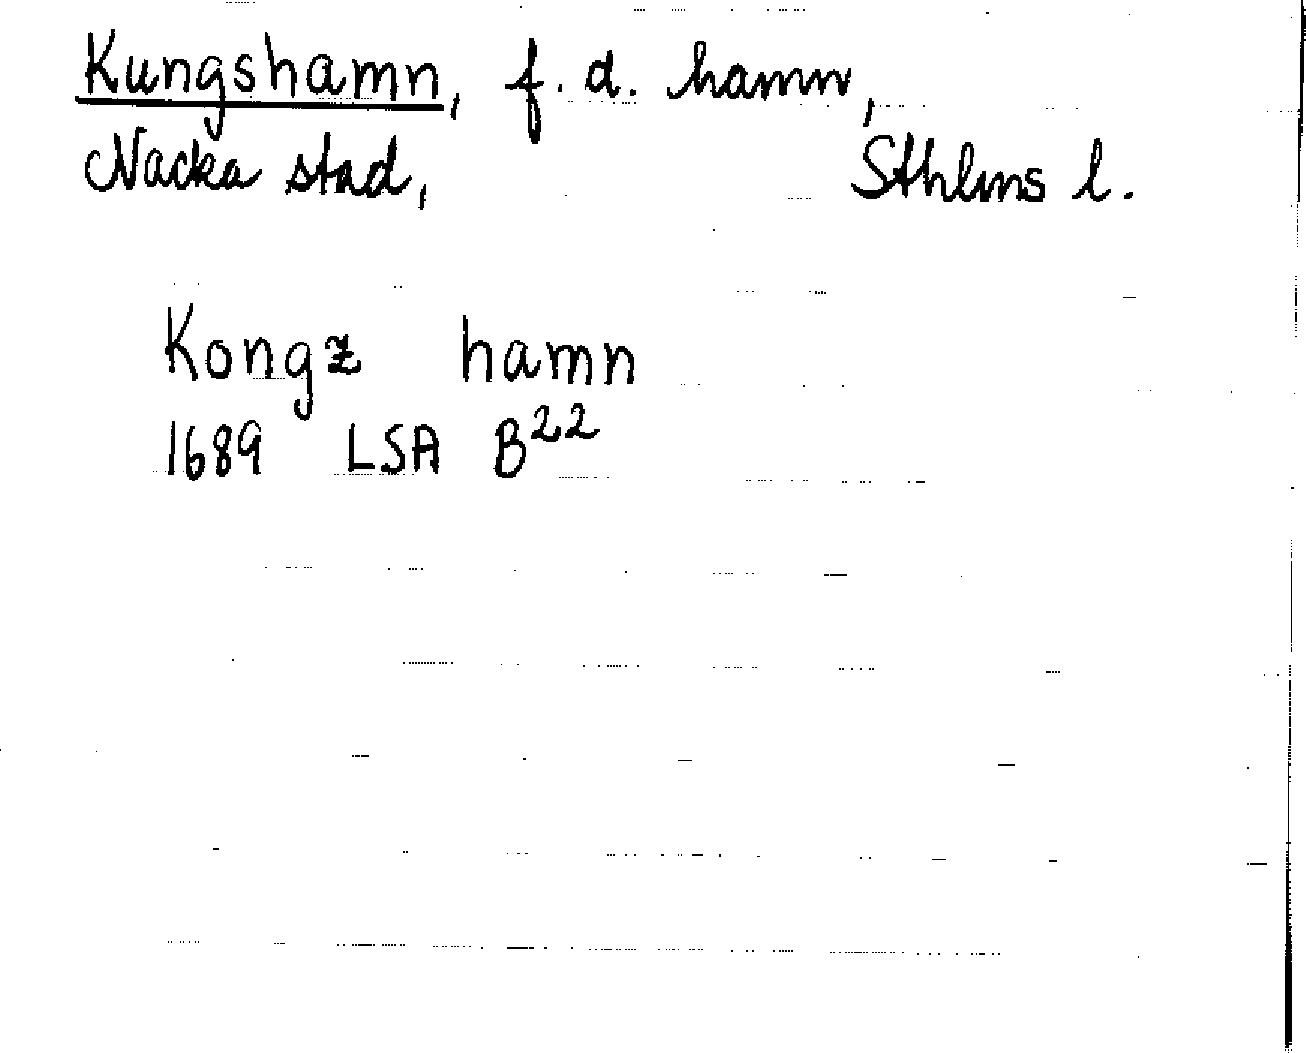 Kungshamn, f. d. hamn,
Nacka stad, Sthlms l.
Kongz hamn
1689 LSA B²²